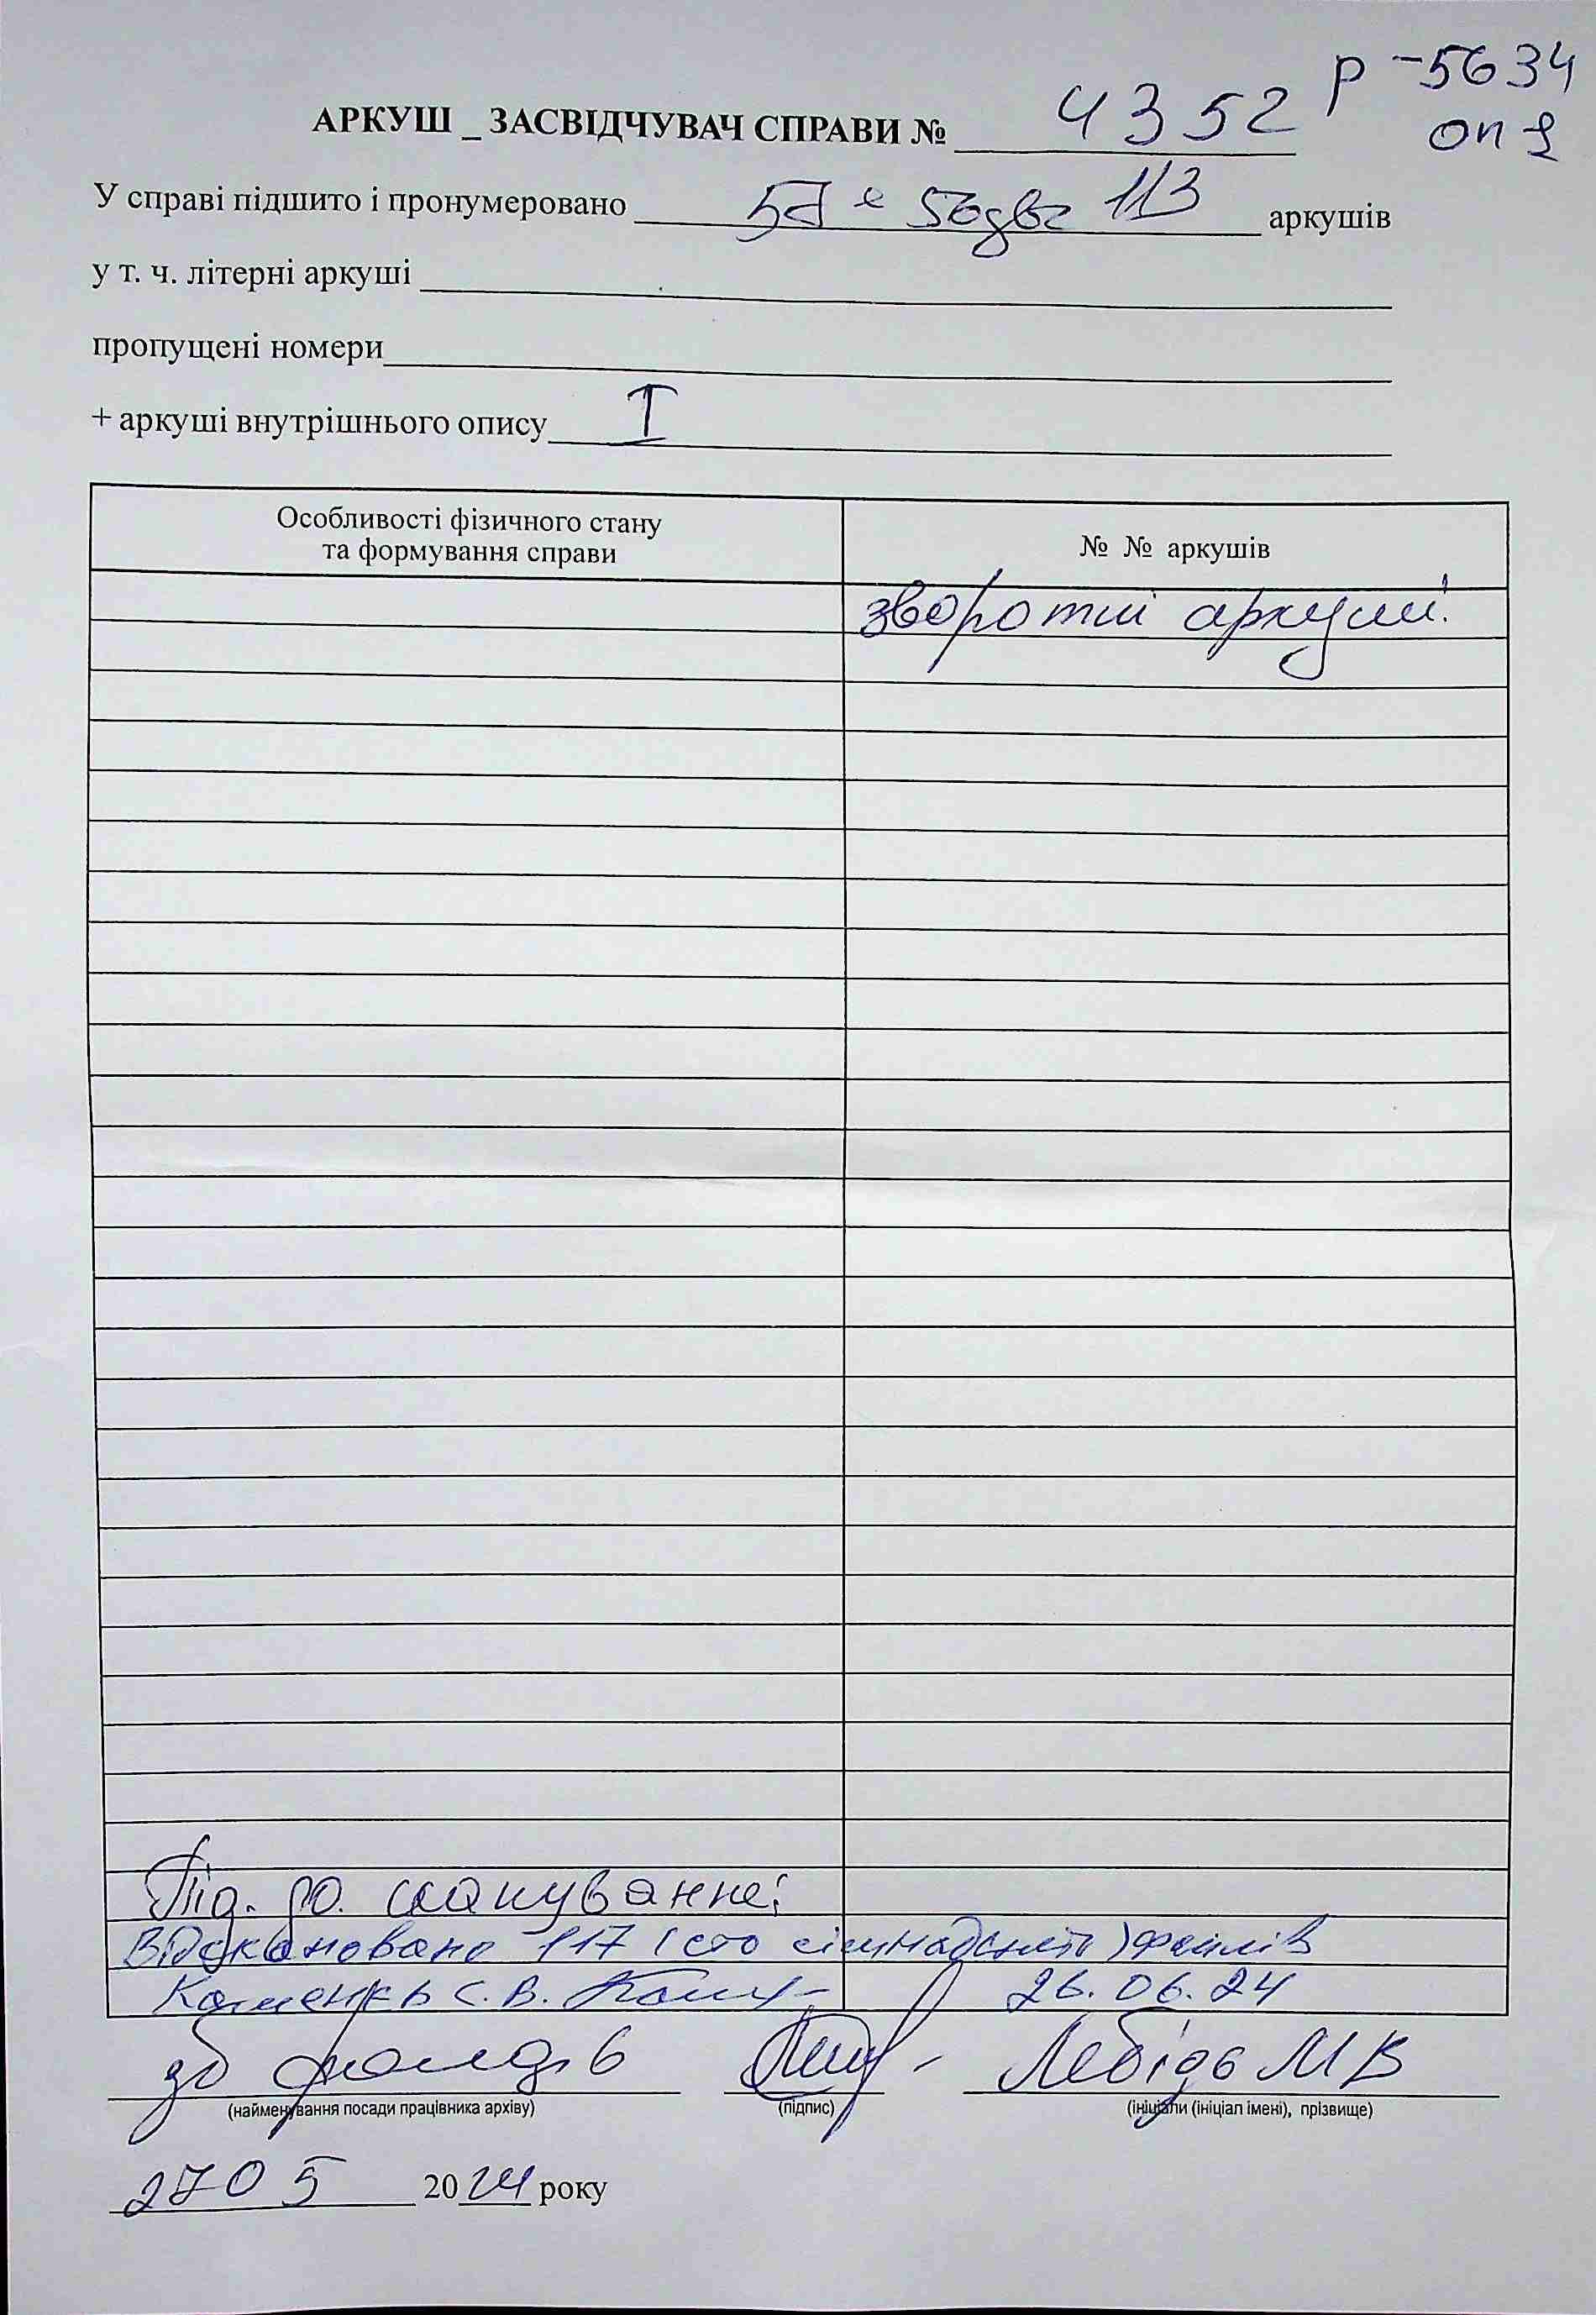 р-5634
АРКУШ _ ЗАСВІДЧУВАЧ СПРАВИ № 4352
оп 2
У справі підшито і пронумеровано 113 аркушів
у т. ч. літерні аркуші
пропущені номери
+ аркуші внутрішнього опису I
Особливості фізичного стану
та формування справи
№ № аркушів
зворотні аркуші!
Під. до сканування:
Відскановано 117 (сто сімнадцять) файлів
С.В. 26.06.24
Лебідь М В
(найменування посади працівника архіву) (підпис) (ініціали (ініціал імені), прізвище)
2705 2024 року